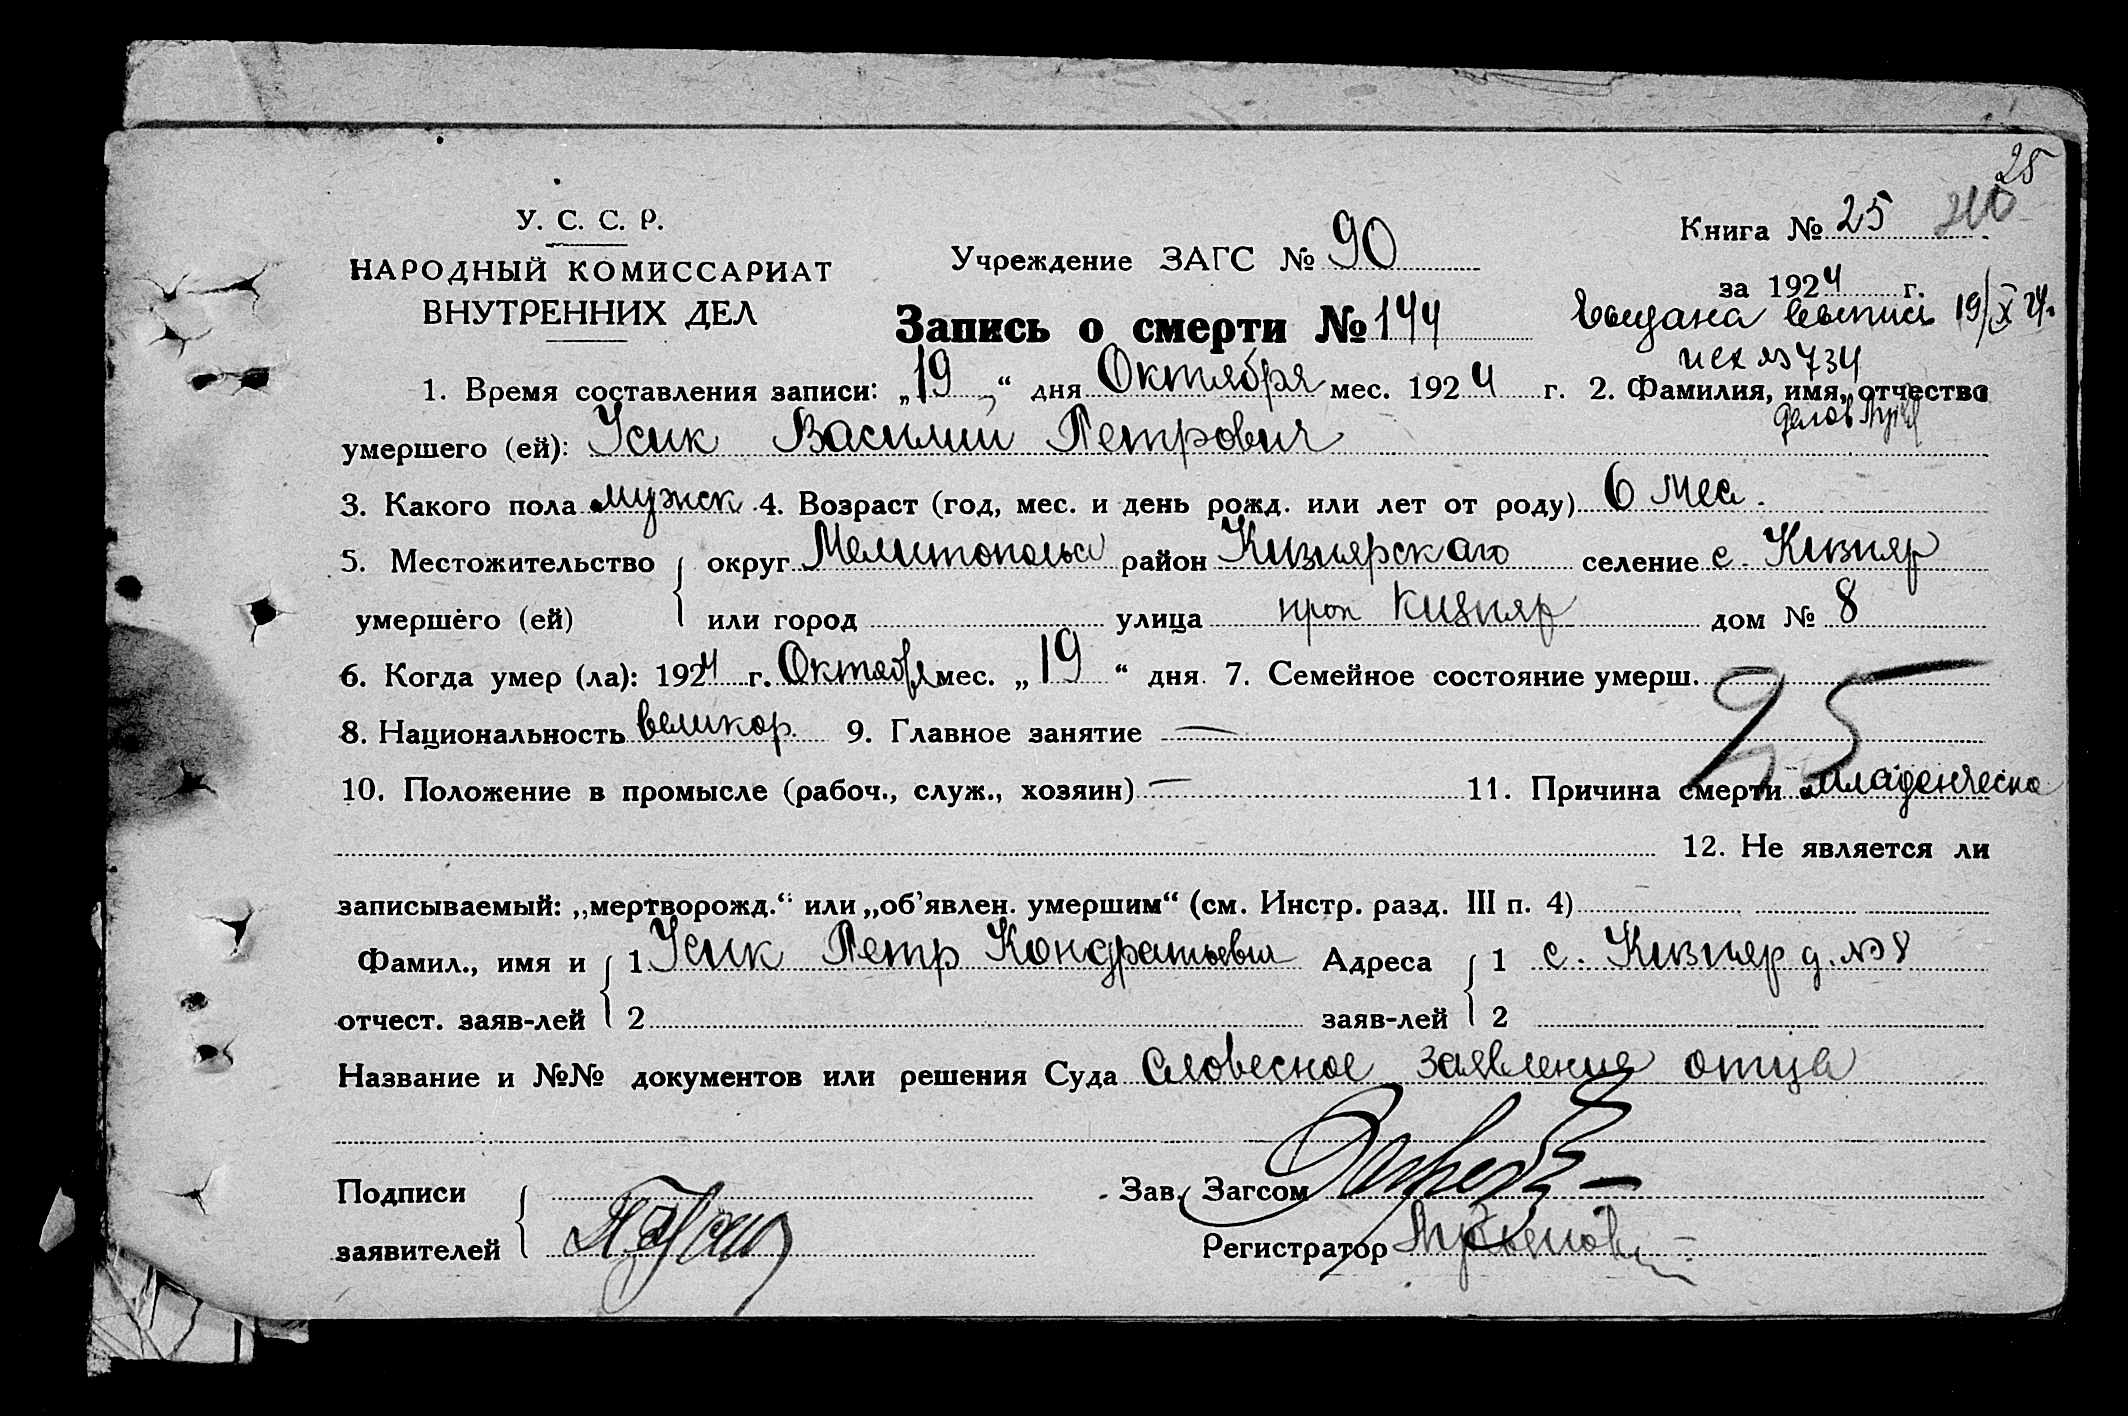 25
У. С. С. Р.
НАРОДНЫЙ КОМИССАРИАТ
ВНУТРЕННИХ ДЕЛ
Учреждение ЗАГС № 90
Книга № 25
за 1924 г.
Запись о смерти № 144
Выдана выпись 19/X 24.
исх № 734
1. Время составления записи: „19“ дня Октября мес. 1924 г. 2. Фамилия, имя, отчество
умершего (ей): Усик Василий Петрович
3. Какого пола мужск 4. Возраст (год, мес. и день рожд. или лет от роду) 6 мес.
5. Местожительство округ Мелитопольс район Кизиярскаго селение с. Кизияр
умершего (ей) или город улица Кизияр дом № 8
6. Когда умер (ла): 1924 г. Октября мес. „19“ дня 7. Семейное состояние умерш.
25
8. Национальность великор. 9. Главное занятие —
10. Положение в промысле (рабоч., служ., хозяин) — 11. Причина смерти младенческа
12. Не является ли
записываемый: „мертворожд.“ или „об’явлен. умершим“ (см. Инстр. разд. III п. 4)
Фамил., имя и 1 Усик Петр Кондратьевич Адреса 1 с. Кизияр д. № 8
отчест. заяв-лей 2 заяв-лей 2
Название и №№ документов или решения Суда Словесное заявление отца
Подписи Зав. Загсом
заявителей Регистратор